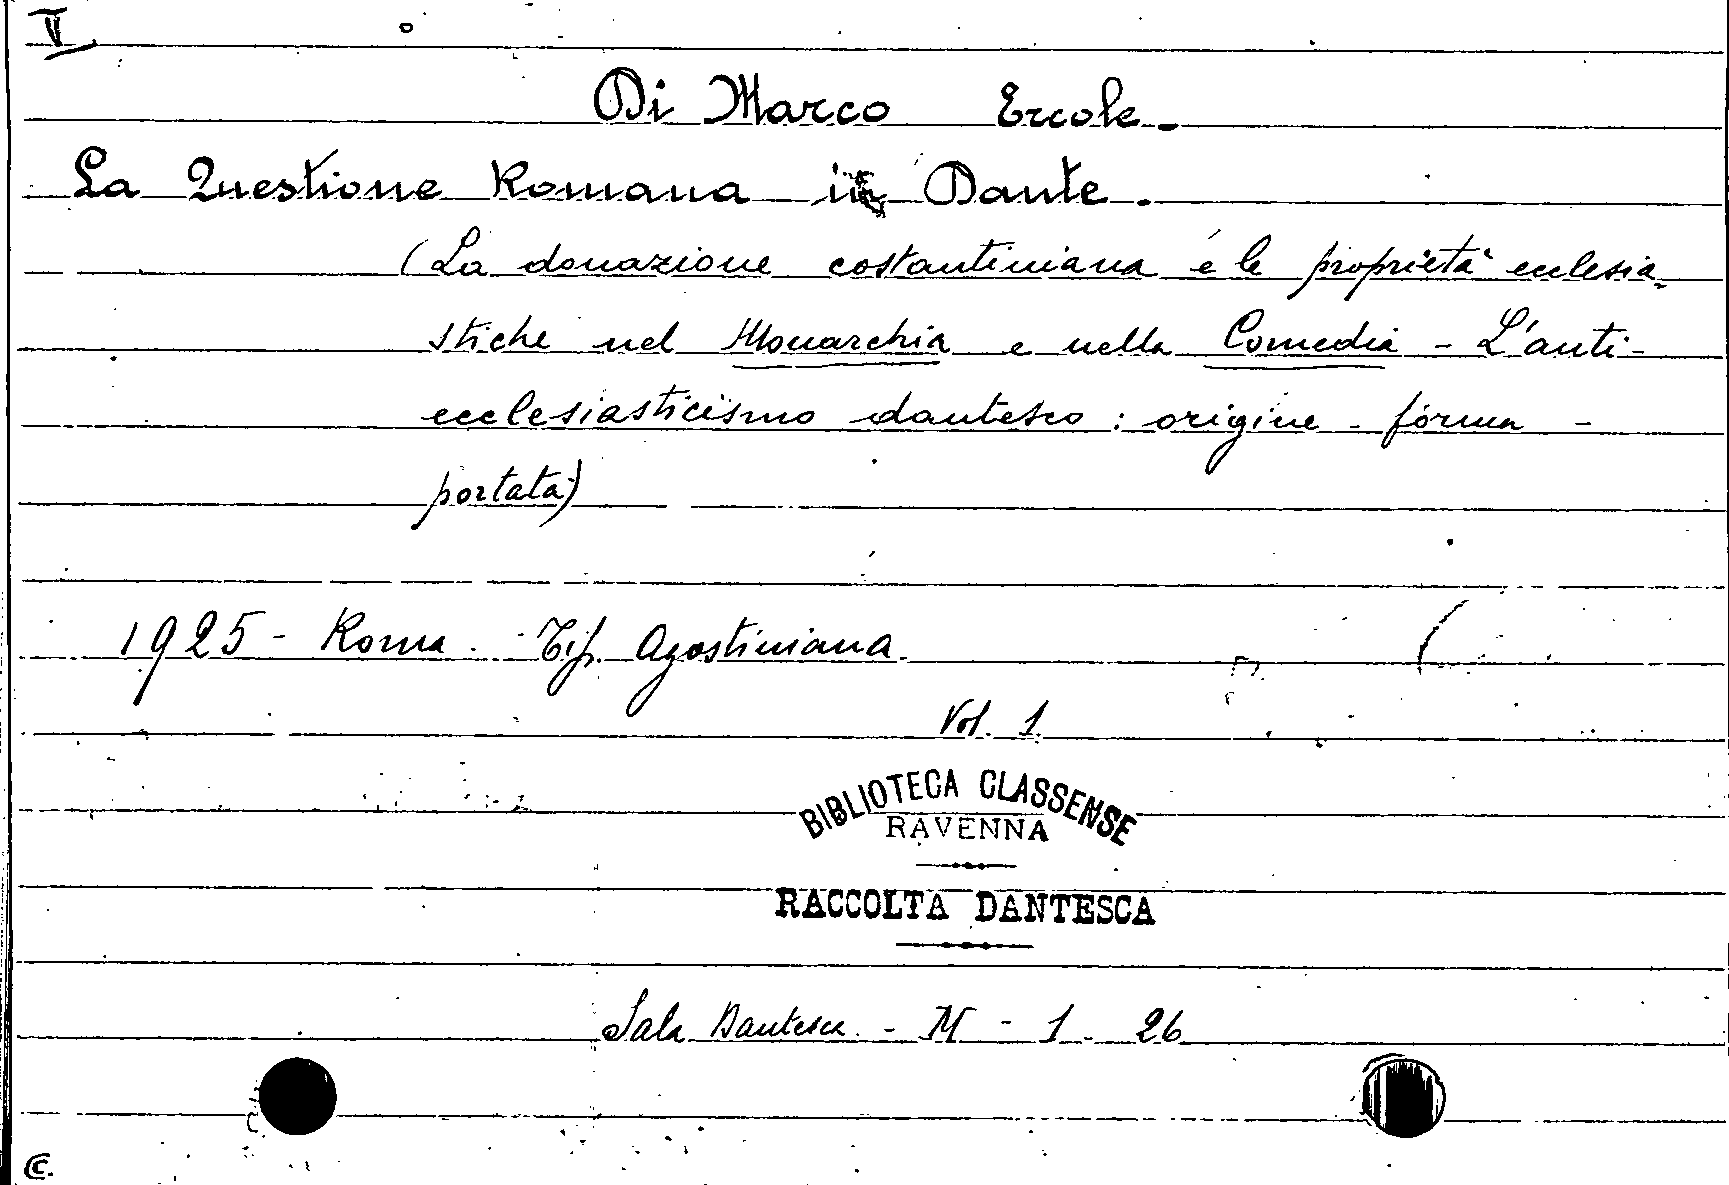 V
Di Marco Ercole.
La Questione Romana in Dante.
(La donazione costantiniana e le proprietà ecclesia-
stiche nel Monarchia e nella Comedia - L'anti-
ecclesiasticismo dantesco: origine - forma -
portata)
1925 - Roma. - Tip. Agostiniana.
Vol. 1.
BIBLIOTECA CLASSENSE
RAVENNA
RACCOLTA DANTESCA
Sala Dantesca. - M - 1. 26
C.